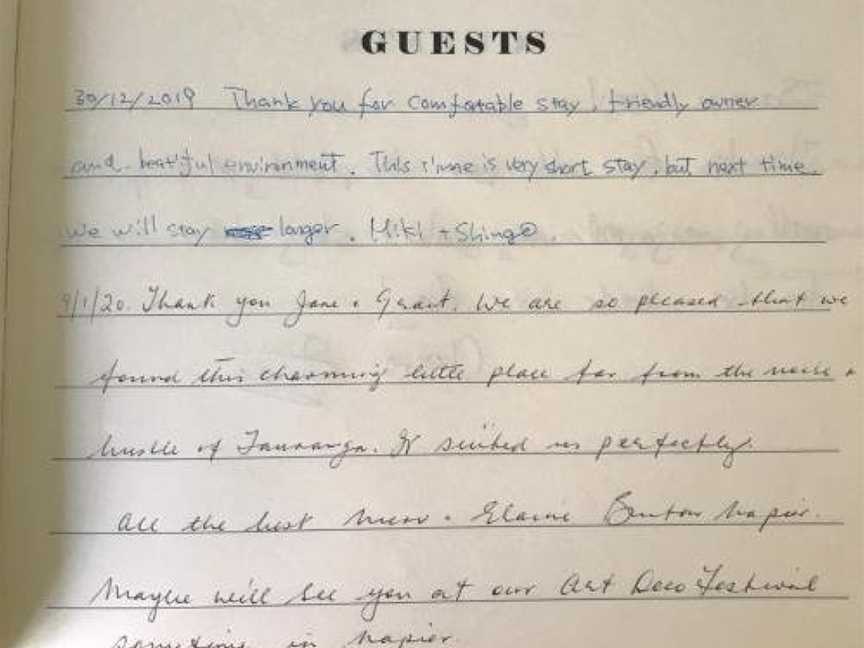 GUESTS
30/12/2019 Thank you for comfortable stay, friendly owner
and beatiful environment. This time is very short stay, but next time
we will stay longer. Miki + Shingo.
9/1/20. Thank you Jane & Grant. We are so pleased that we
found this charming little place far from the noise &
bustle of Tauranga. It suited us perfectly.
All the best & Elaine Benton Napier.
Maybe we'll see you at our Art Deco Festival
sometime in Napier.